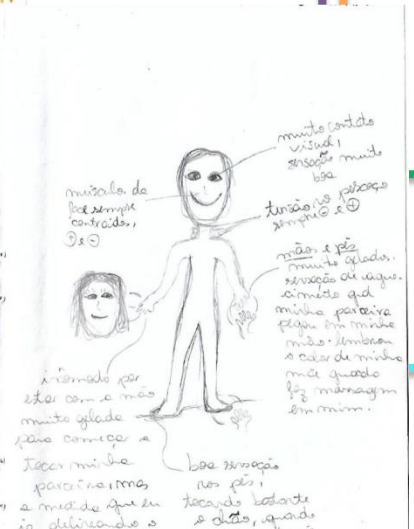 muito contato
visual,
sensação muito
boa
músculo da
face sempre
contraídos,
⊕ e ⊖
tensão no pescoço
sempre ⊖ e ⊕
mãos e pés
muito gelados.
sensação de aque-
cimento qd
minha parceira
pegou em minha
mão. lembrou
o calor de minha
mãe quando
fez massagem
em mim.
incômodo por
estar com a mão
muito gelada
para começar a
tocar minha
parceira, mas
a medida que eu
ia delineando o
boa sensação
nos pés,
tocando bastante
o chão, quando